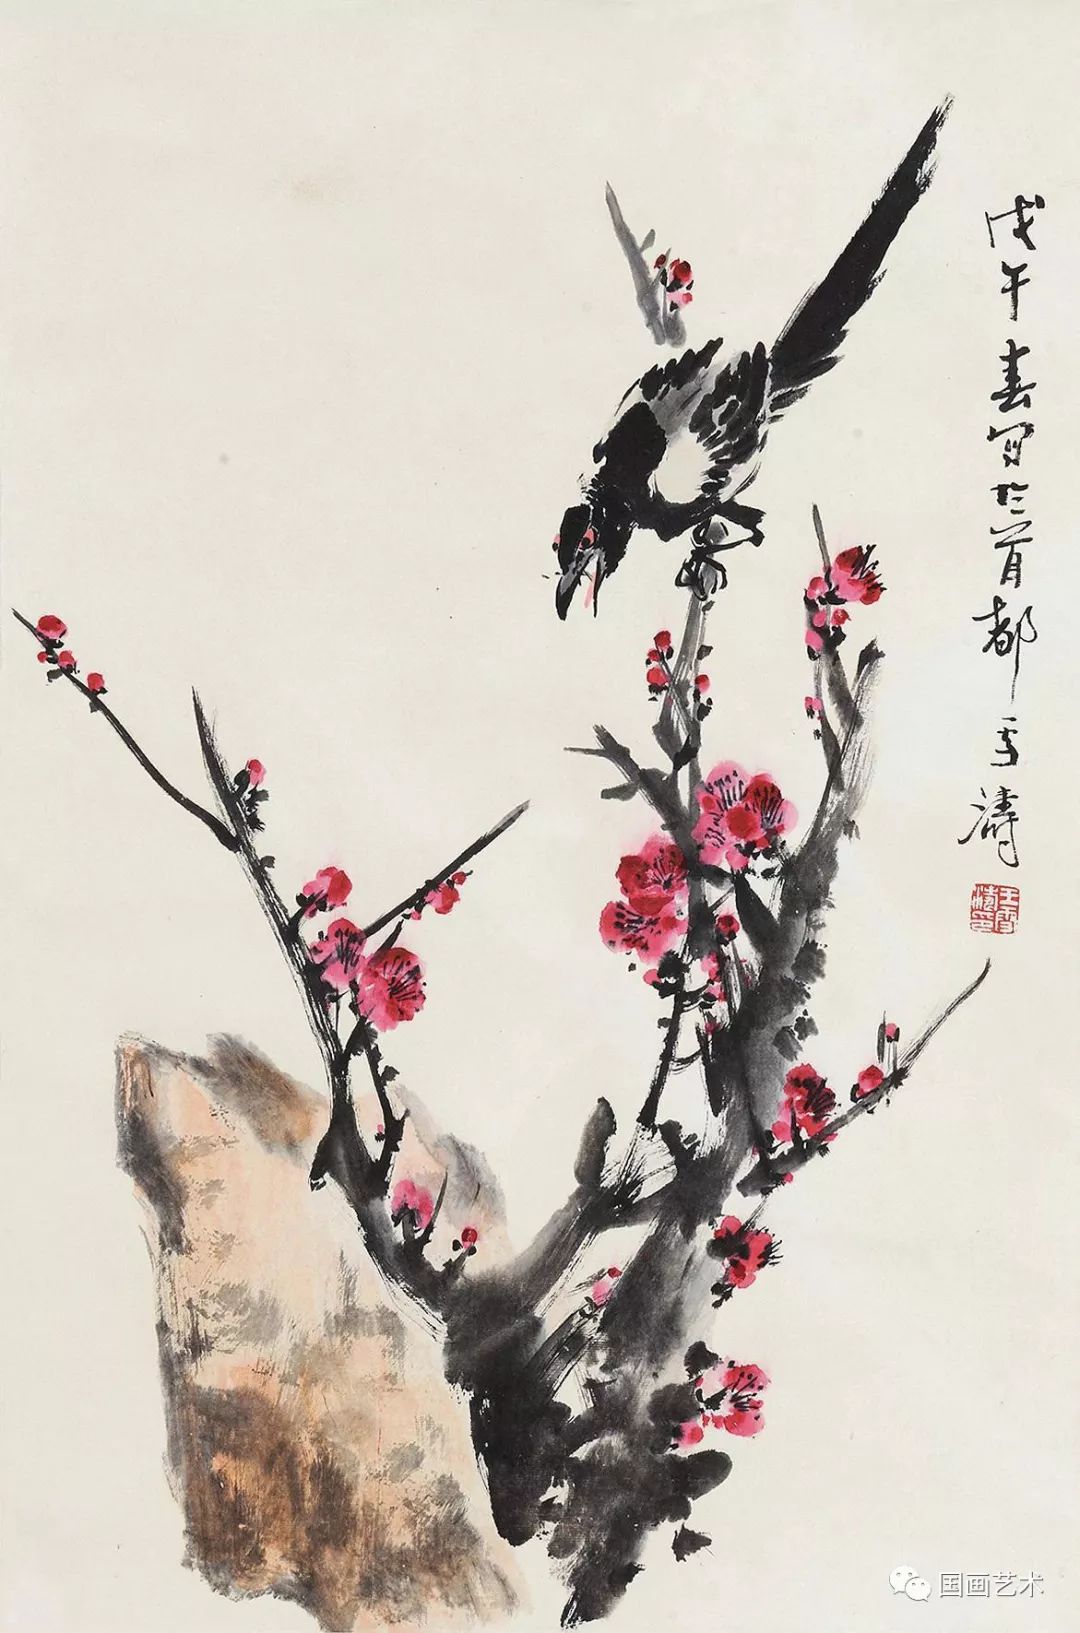 戊午春写於首都雪涛
王雪涛印
国画艺术